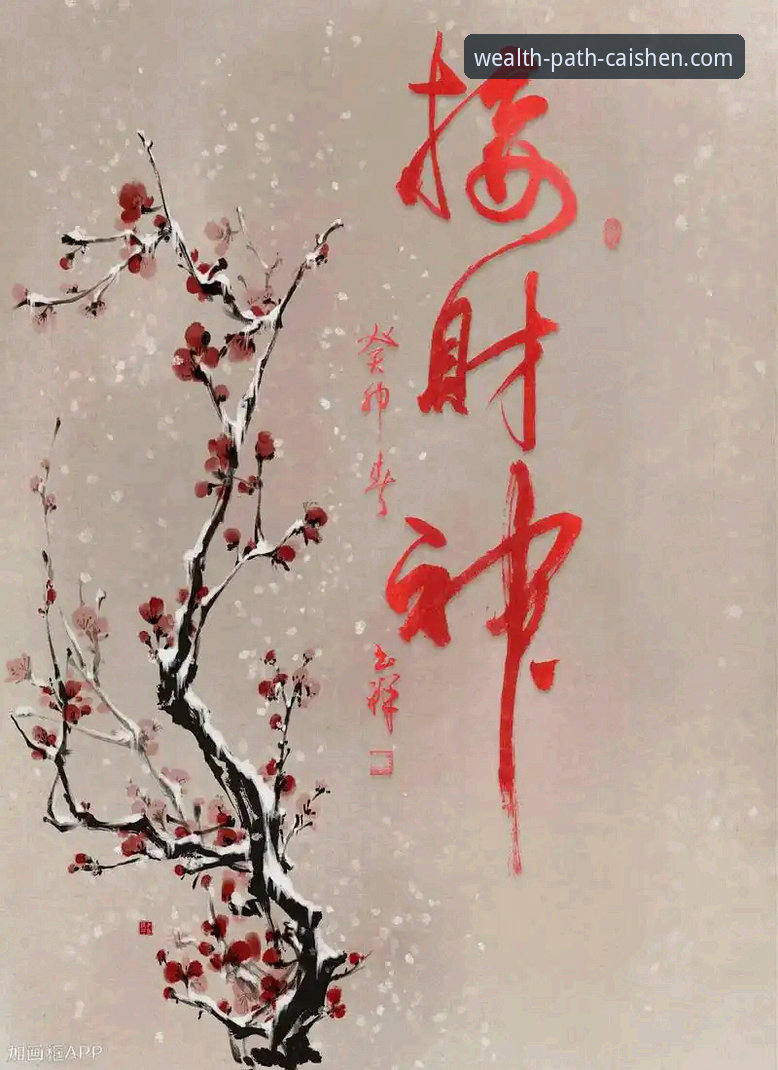 wealth-path-caishen.com
接財神
癸卯春
玉祥
加画框APP